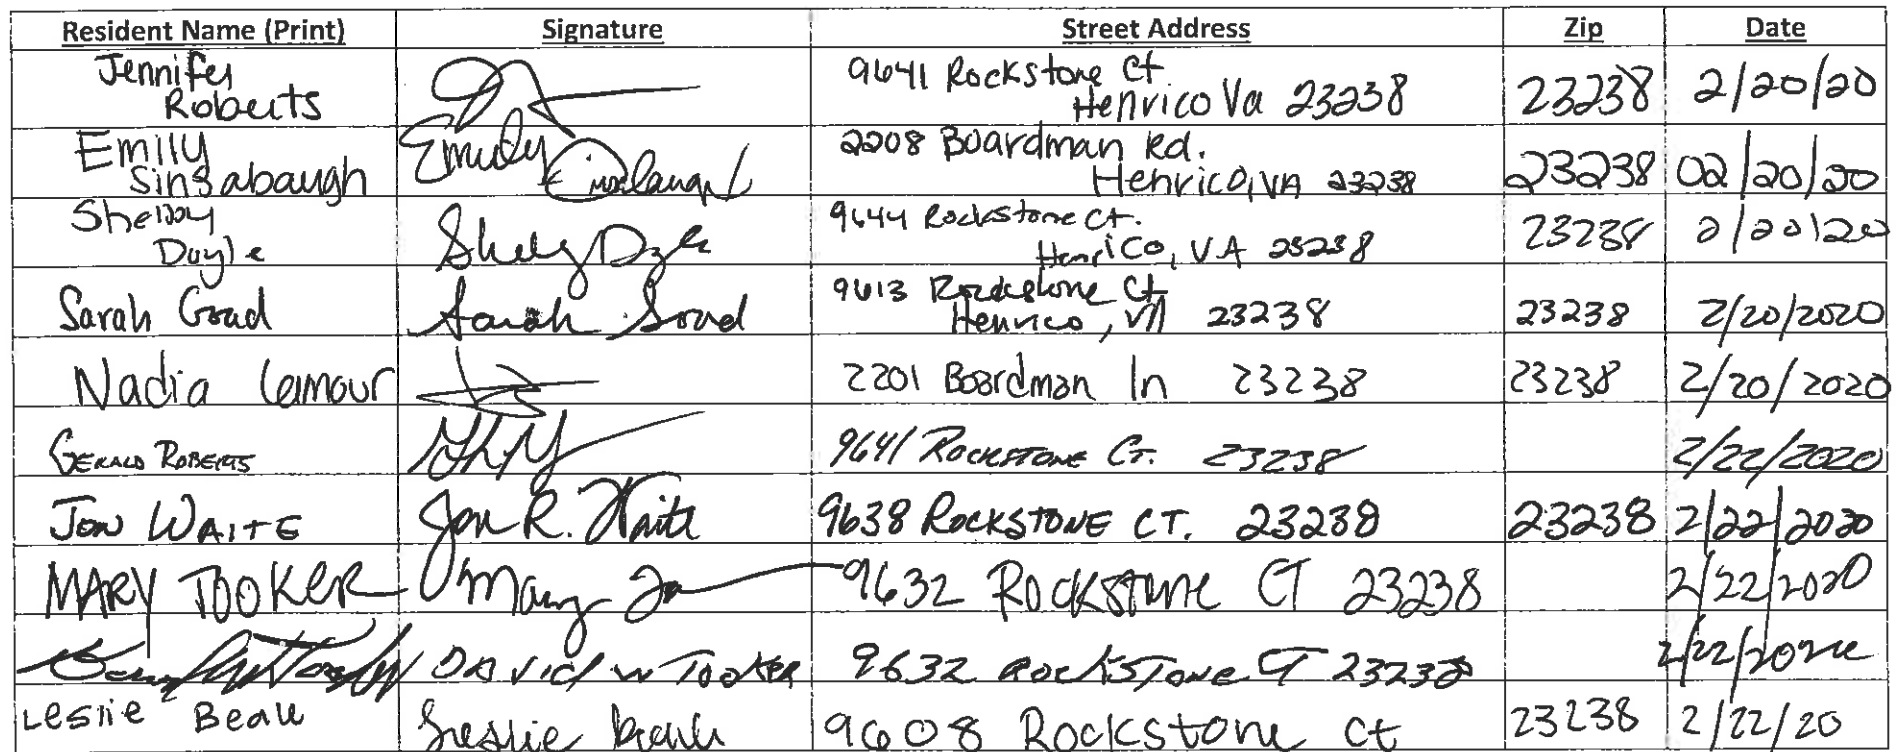 Resident Name (Print) Signature Street Address Zip Date
Jennifer Roberts 9641 Rockstone Ct Henrico Va 23238 23238 2/20/20
Emily Sinsabaugh Emily Sinsabaugh 2208 Boardman Rd. Henrico, VA 23238 23238 02/20/20
Shelby Doyle Shelby Doyle 9644 Rockstone Ct. Henrico, VA 23238 23238 2/20/20
Sarah Goad Sarah Goad 9613 Rockstone Ct Henrico, VA 23238 23238 2/20/2020
Nadia Lamour 2201 Boardman ln 23238 23238 2/20/2020
GERALD ROBERTS 9641 ROCKSTONE CT. 23238 2/22/2020
JON WAITE Jon R. Waite 9638 ROCKSTONE CT. 23238 23238 2/22/2020
MARY TOOKER Mary 9632 ROCKSTONE CT 23238 2/22/2020
DAVID W TOOKER 9632 ROCKSTONE CT 23238 2/22/2020
Leslie Beale Leslie Beale 9608 Rockstone Ct 23238 2/22/20